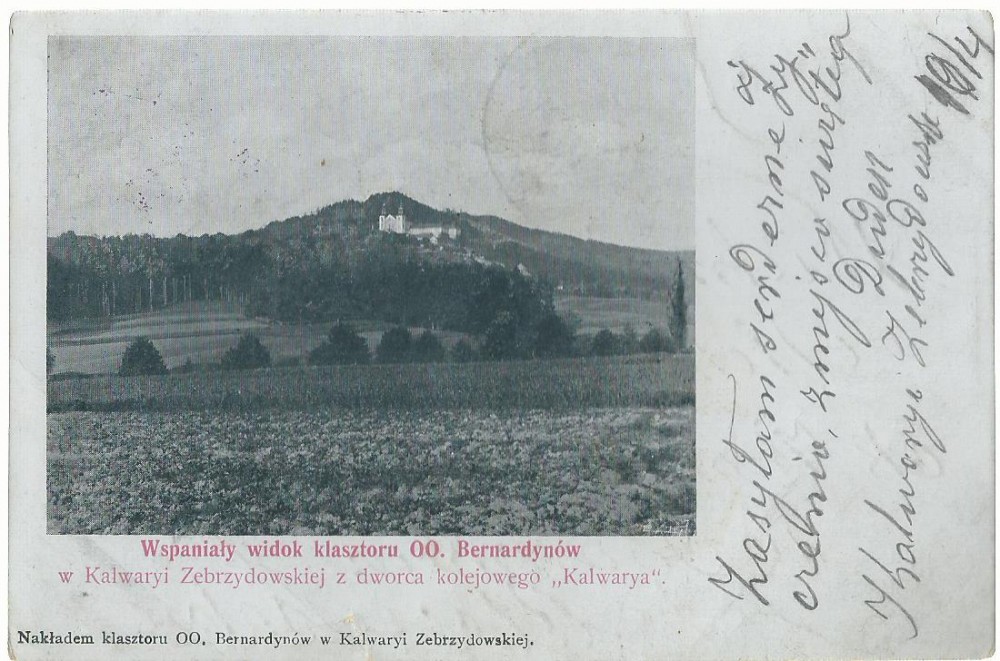 Wspaniały widok klasztoru OO. Bernardynów
w Kalwaryi Zebrzydowskiej z dworca kolejowego „Kalwarya“.
Nakładem klasztoru OO. Bernardynów w Kalwaryi Zebrzydowskiej.
Zasyłam serdeczne ży„
czenia, z miejsca
Kalwarya Zebrzydowsk 19/4